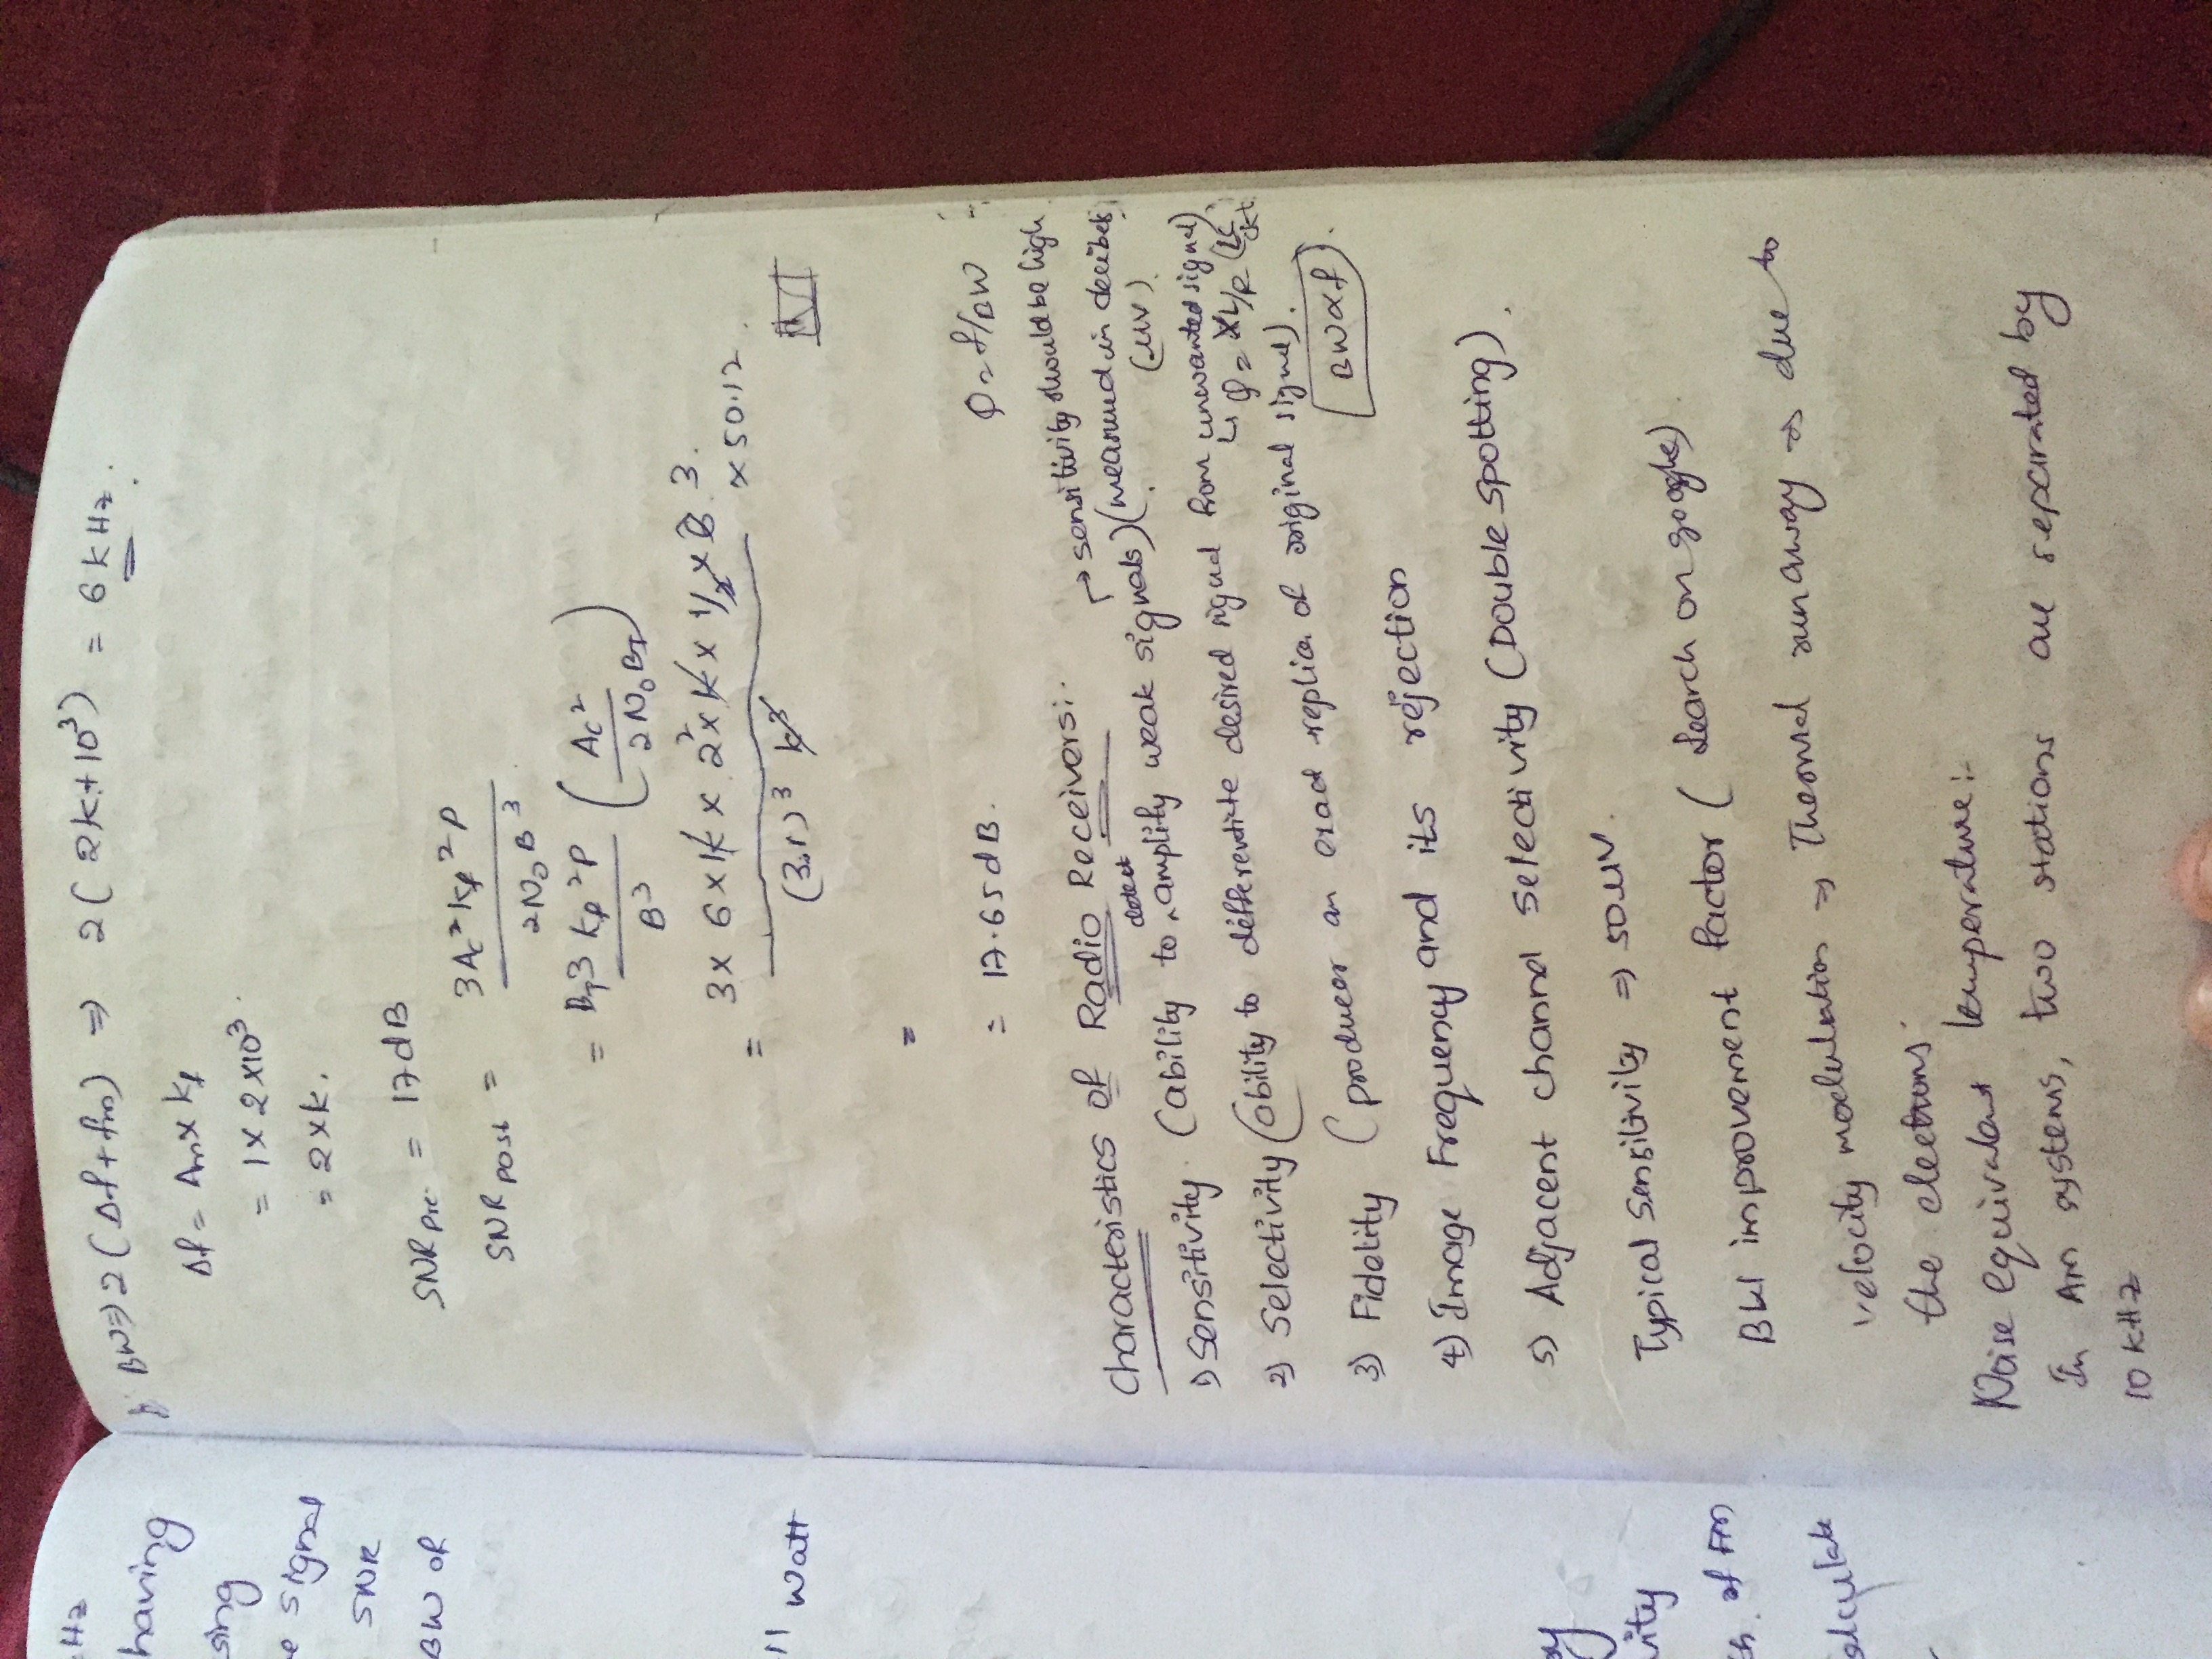 Hz
having
sing
e signal
SNR
BW of
11 watt
vity
of FM
alculate
BW⇒2(Δf+fm) ⇒ 2(2k+10³) = 6kHz.
Δf = Am x kf
= 1x2x10³.
= 2xk.
SNR pre. = 17dB
SNR post = 3Ac²kf²P / 2N₀B³
= BT3 kf²P / B³ (Ac² / 2N₀BT)
= 3x 6xkx 2²xkx 1/2 x6 3. / (3.1)³ k³ x50.12
=
= 17.65dB.
Q=f/BW
Characteristics of Radio Receivers:-
→ sensitivity should be high
1) Sensitivity (ability to detect amplify weak signals) (measured in decibels)
(uv).
2) Selectivity (ability to differentiate desired signal from unwanted signal)
↳ Q= XL/R (LC ckt
3) Fidelity (producer an exact replica of original signal).
BW∝f
4) Image Frequency and its rejection
5) Adjacent channel selectivity (Double spotting).
Typical Sensitivity ⇒ 50uv.
improvement factor (Search on google).
velocity modulation ⇒ Thermal runaway ⇒ due to
the electrons.
Noise equivalent temperature:-
In AM systems, two stations are separated by
10 kHz